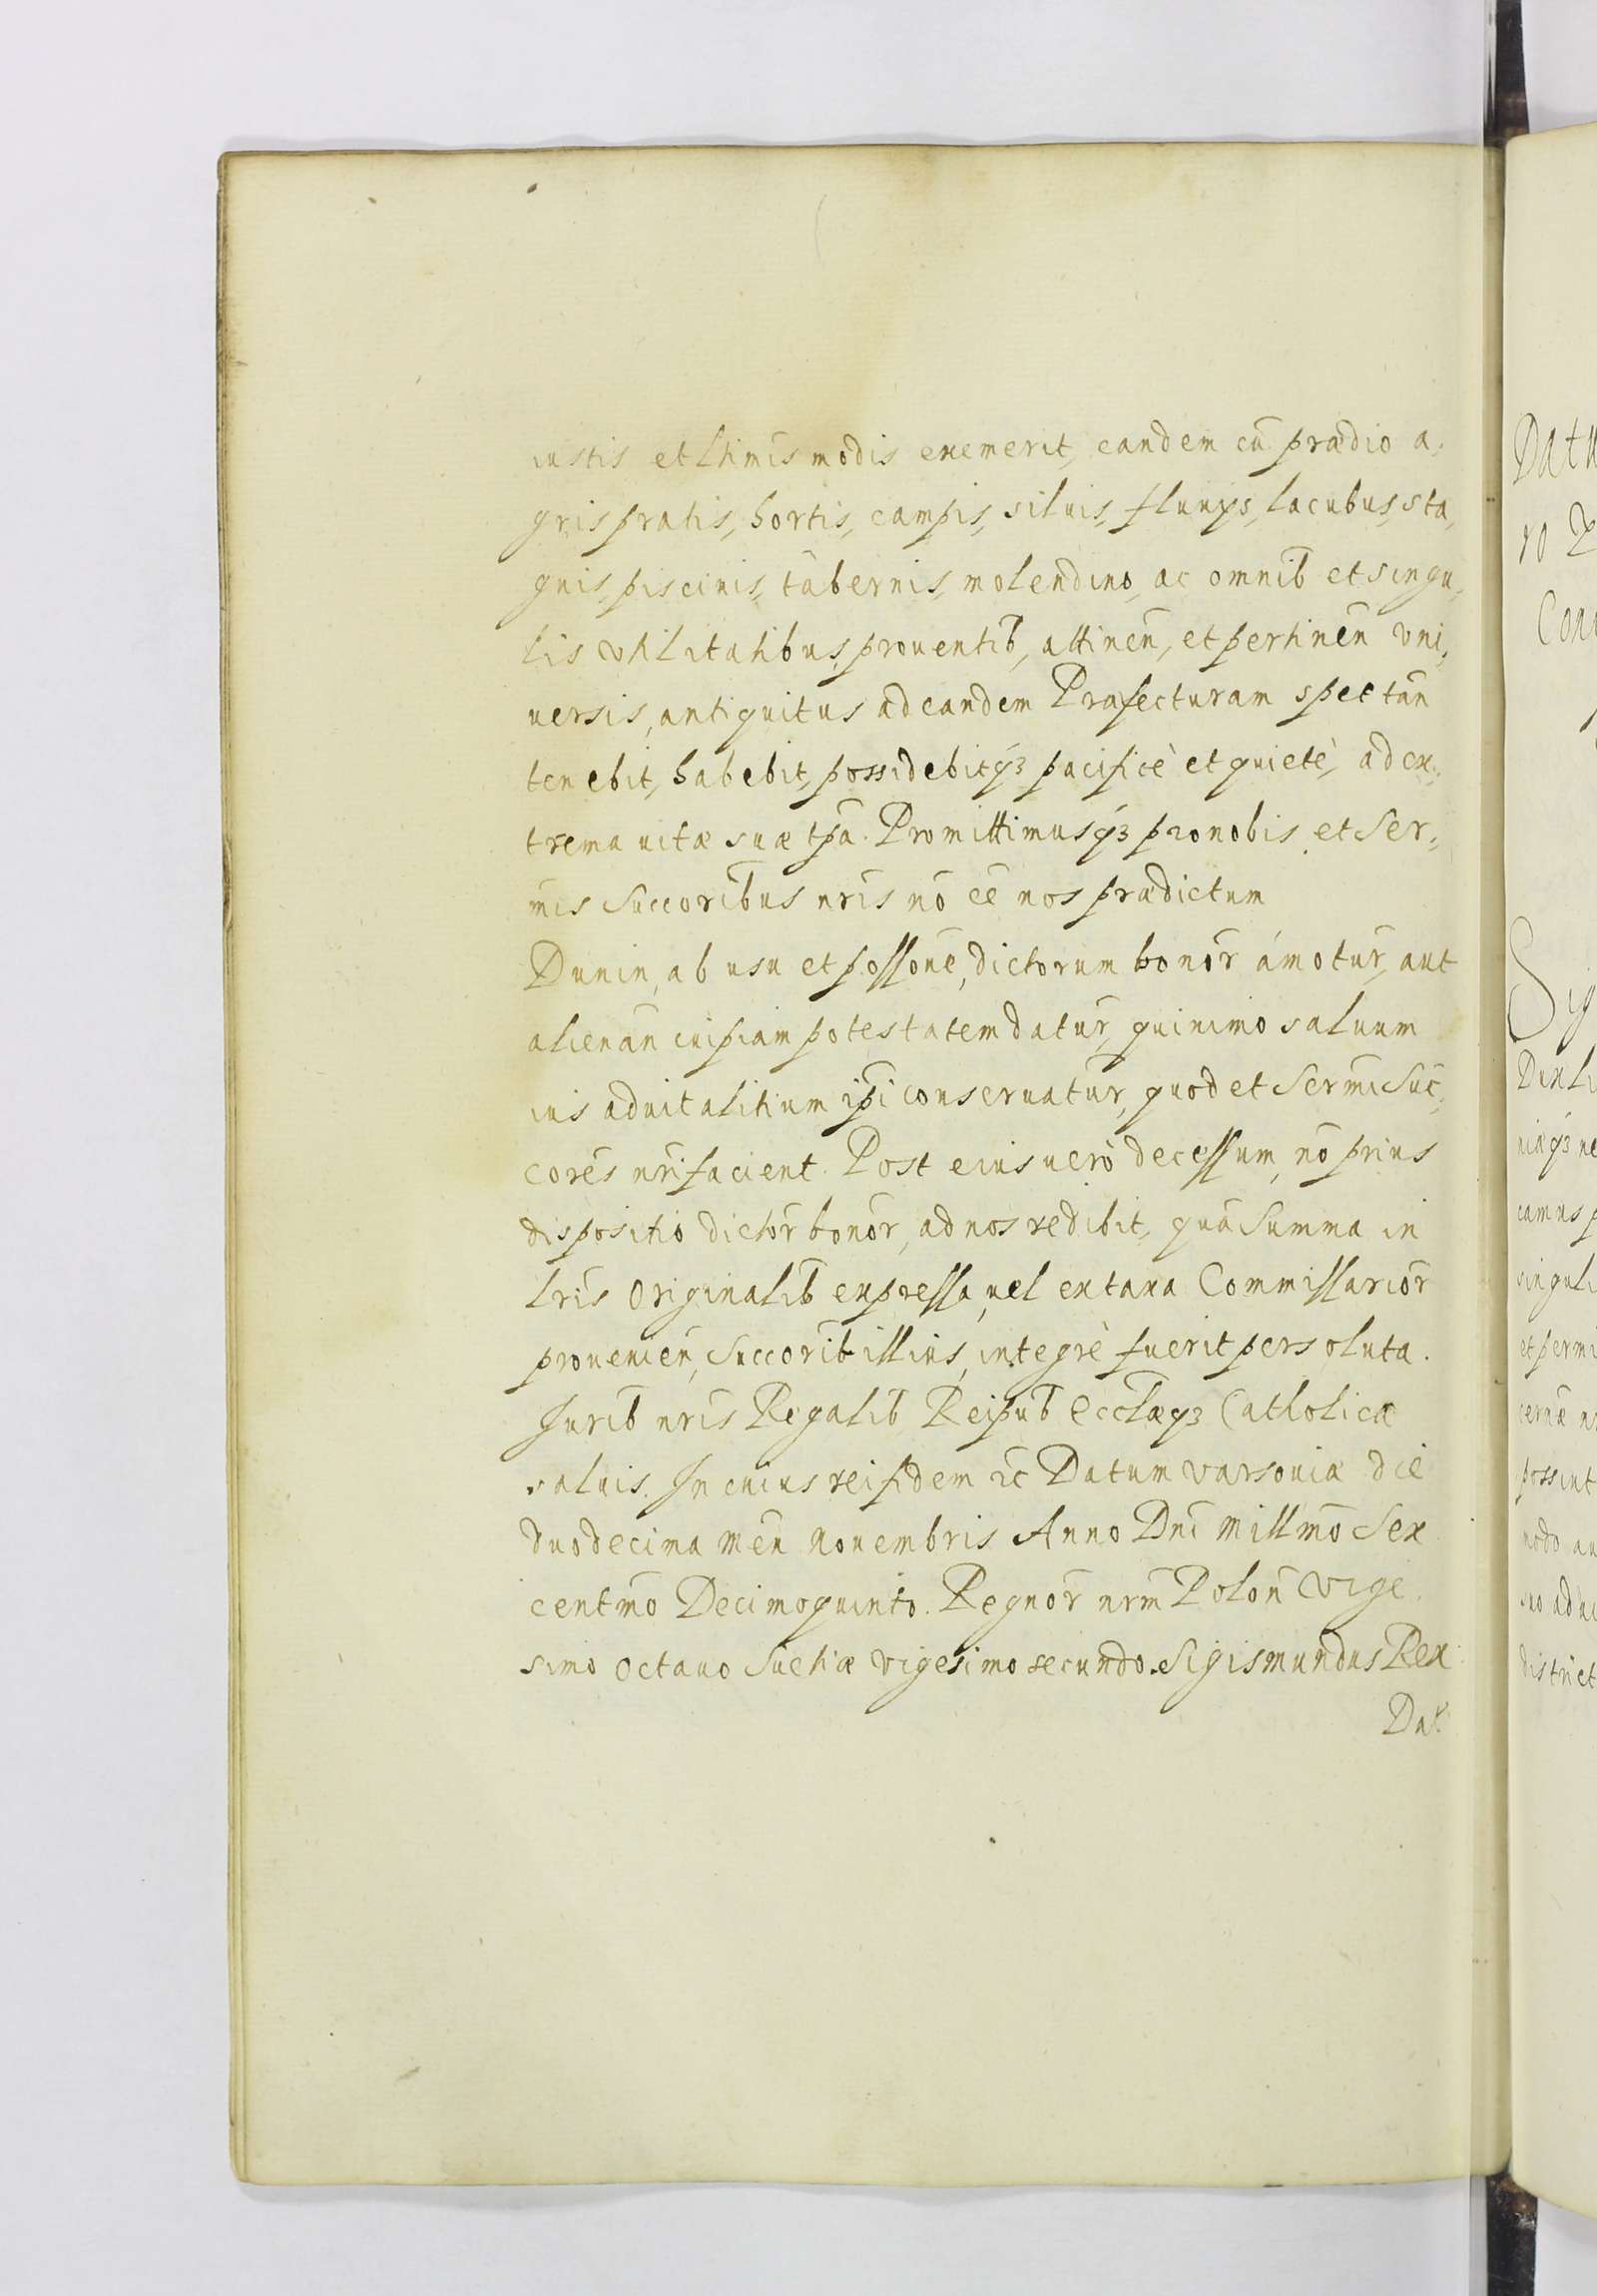 iustis et Ltimis modis exemerit, eandem cū prædio a,
gris pratis, hortis, campis, siluis, fluuijs, lacubus, sta,
gnis, piscinis, tabernis, molendino, ac omnib̄ et singu,
lis vtilitatibus, prouentib̄, attinen̄, et pertinen̄ vni,
uersis, antiquitus ad eandem Præfecturam spectan̄
tenebit, habebit, possidebitq₃ pacificè et quietè, ad ex,
trema uitæ suæ tp̄a. Promittimusq₃ pro nobis et Ser,
mis Succoribus nr̄is nō eē nos prædictum
Dunin, ab usu et possone, dictorum bonor̄ amotur̄, aut
alienan̄ cuipiam potestatem datur̄, quinimo saluum
ius aduitalitium ip̄i conseruatur̄, quod et Sermi Suc̄,
cores nr̄i facient. Post eius uerò decessum, nō prius
dispositio dictor̄ bonor̄, ad nos redibit, quā Summa in
Lris Originalib̄ expressa, uel ex taxa Commissarior̄
proueniēn, Succorib̄ illius, integrè fuerit persoluta.
Jurib̄ nr̄is Regalib̄ Reipub̄ Eccl̄æq₃ Catholicæ
saluis. In cuius rei fidem ꝛc Datum Varsouiæ die
duodecima Men̄ Nouembris Anno Dnī Millmō Sex
centmō Decimoquinto. Regnor̄ nr̄m Polon̄ Vige
simo octauo Suetiæ vigesimo secundo. Sigismundus Rex
Dat